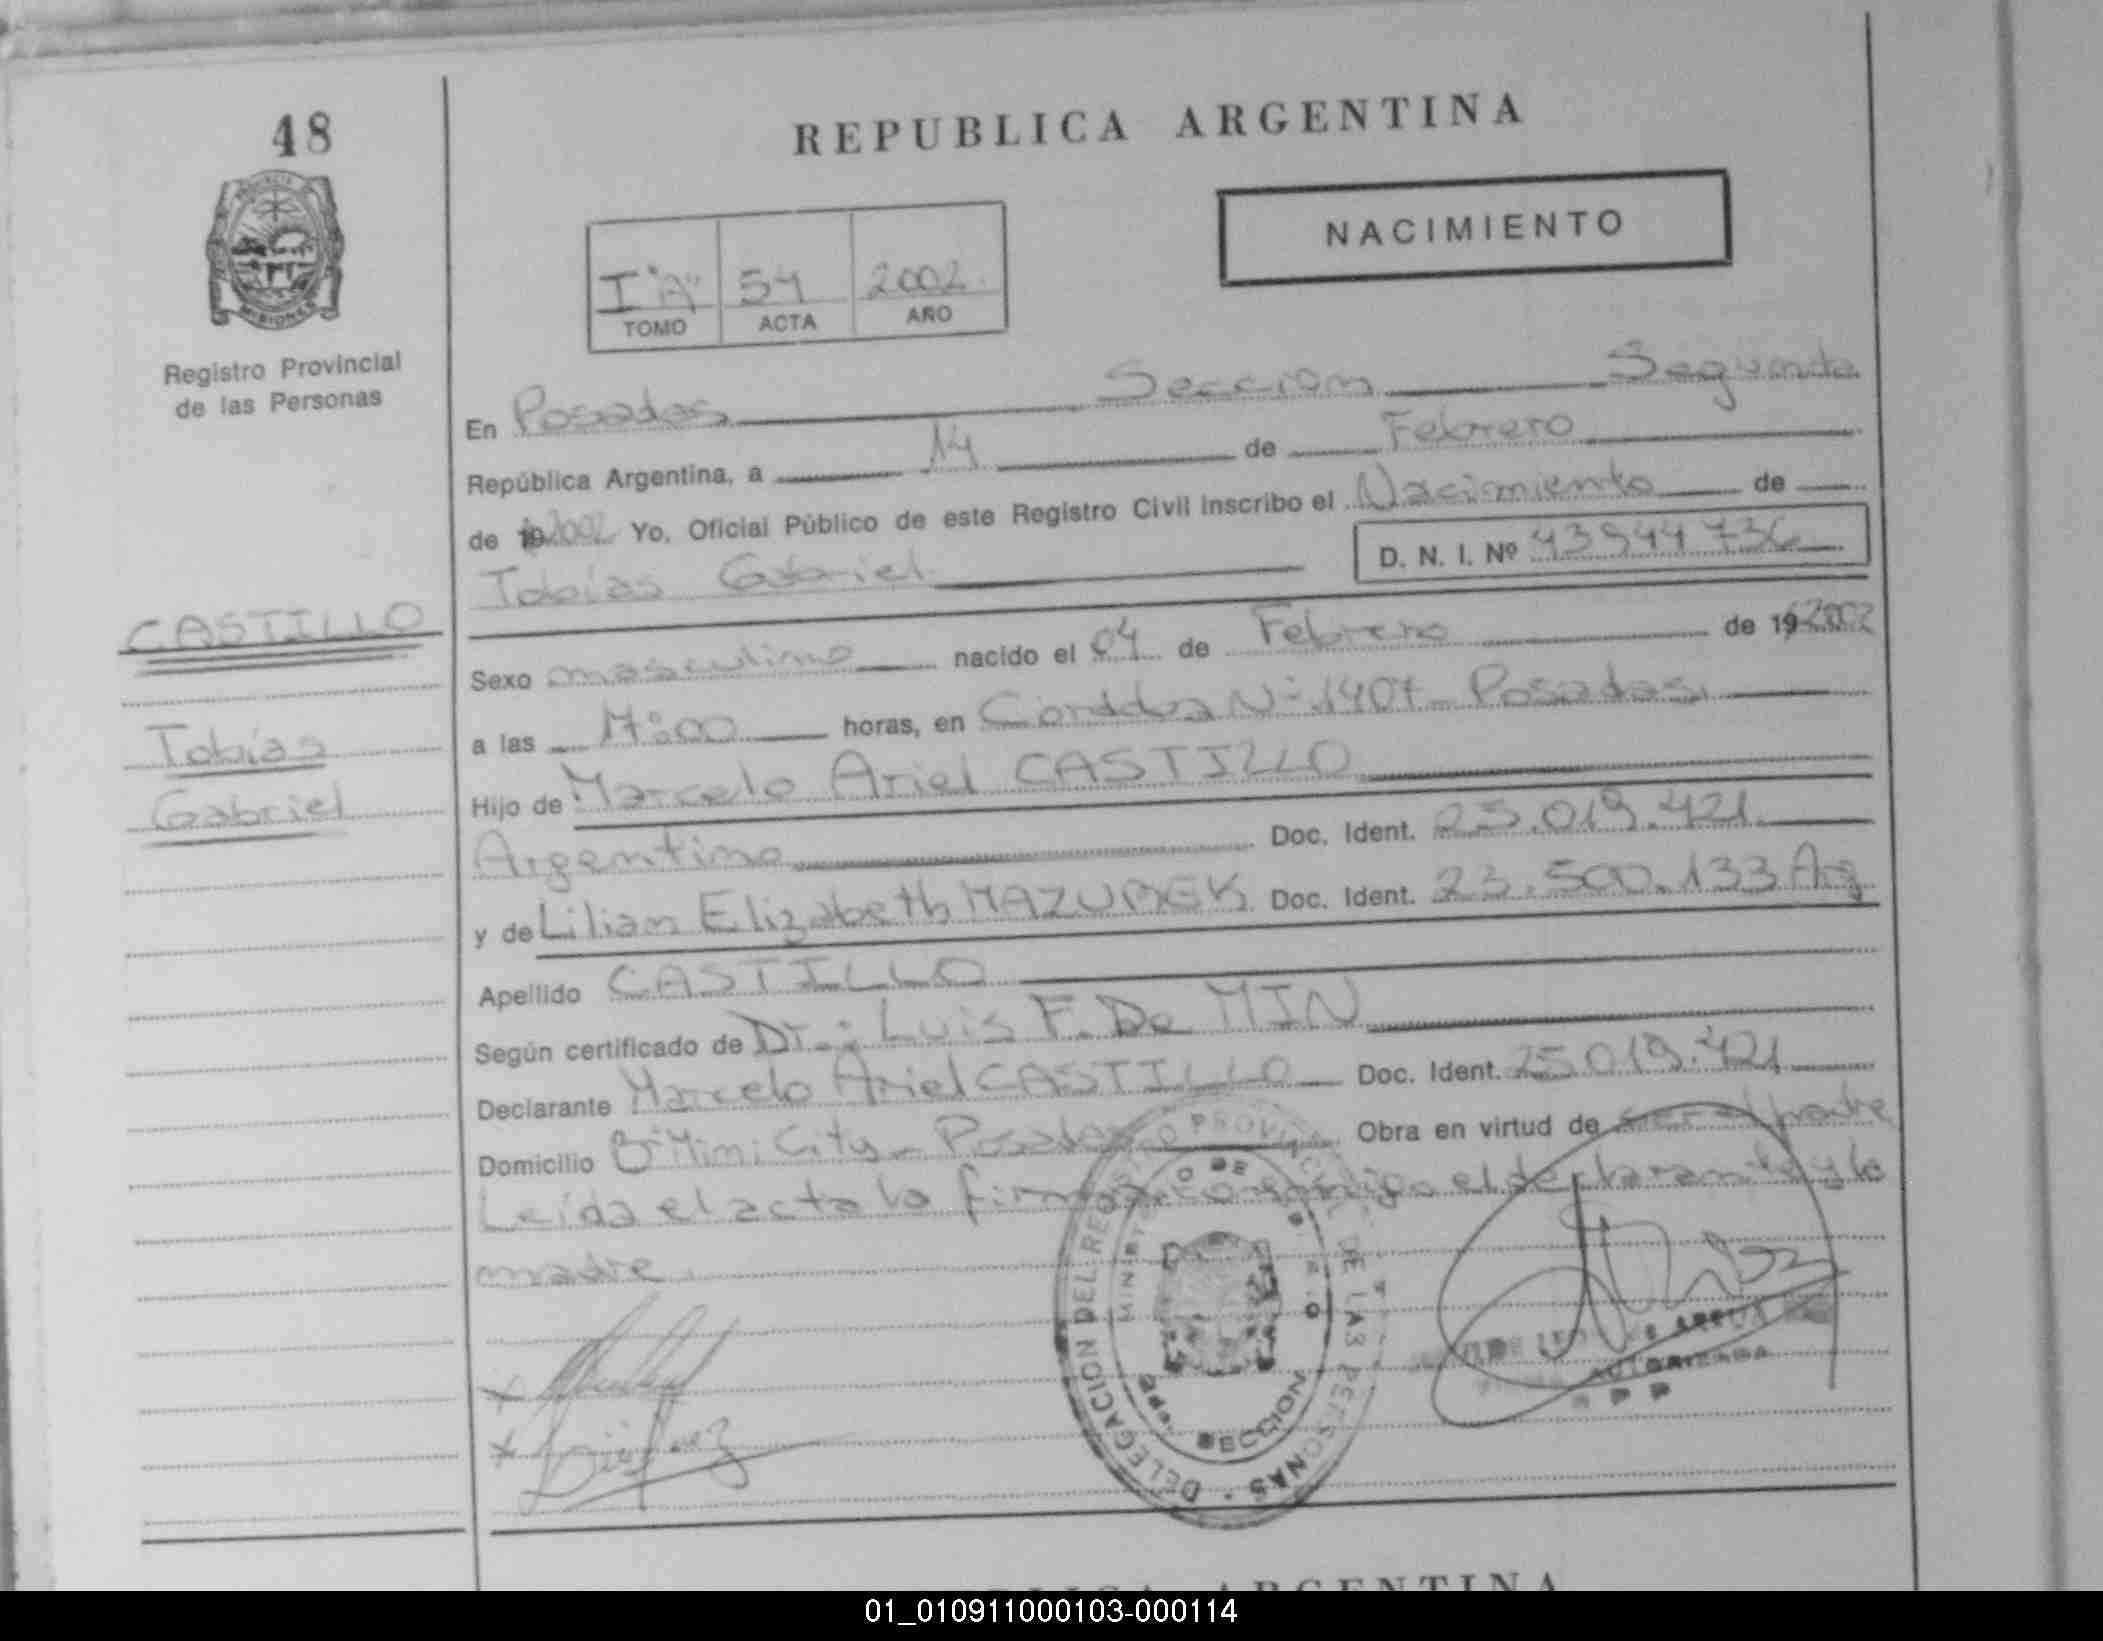 48
REPUBLICA ARGENTINA
NACIMIENTO
I "A" 54 2002
TOMO ACTA AÑO
MISIONES
Registro Provincial
de las Personas
En Posadas Sección Segunda
República Argentina, a 14 de Febrero
de 19 2002 Yo, Oficial Público de este Registro Civil inscribo el Nacimiento de
Tobías Gabriel D. N. I. Nº 43944736
CASTILLO
Tobías
Gabriel
Sexo masculino nacido el 04 de Febrero de 19 2002
a las 17:00 horas, en Cordoba Nº 1407 - Posadas
Hijo de Marcelo Ariel CASTILLO
Argentino Doc. Ident. 25.019.421
y de Lilian Elizabeth MAZUREK Doc. Ident. 23.500.133 Arg
Apellido CASTILLO
Según certificado de Dr.: Luis F. De MIN
Declarante Marcelo Ariel CASTILLO Doc. Ident. 25.019.421
Domicilio Bº Mini City - Posadas Obra en virtud de ser el padre
Leída el acta la firman conmigo el declarante y la
madre
DELEGACION DEL REGISTRO PROVINCIAL DE LAS PERSONAS
SECCION
AUTORIZADA
01_010911000103-000114